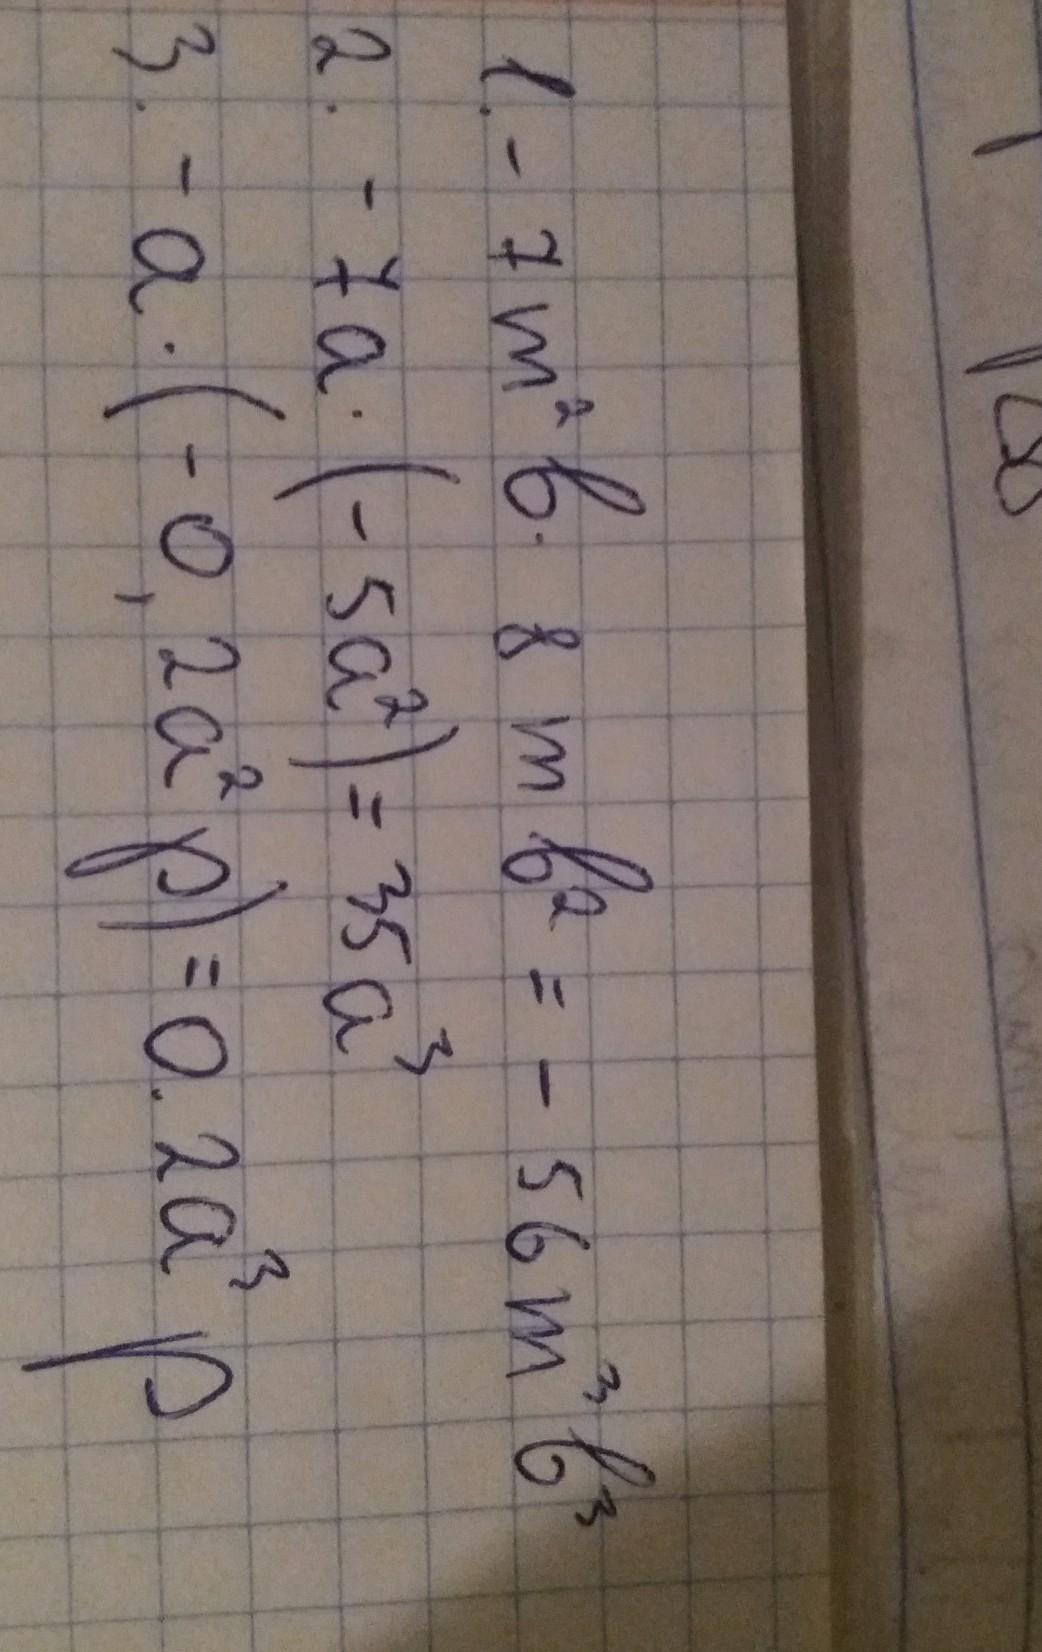 1. - 7m²b · 8mb² = - 56m³b³
2. - 7a · (- 5a²) = 35a³
3. - a · (- 0,2a²p) = 0.2a³p